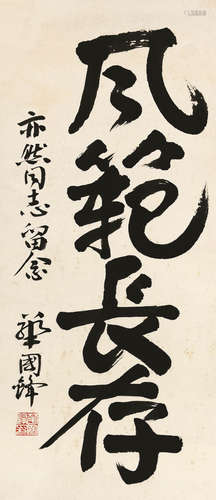 风範長存
亦然同志留念
華國鋒